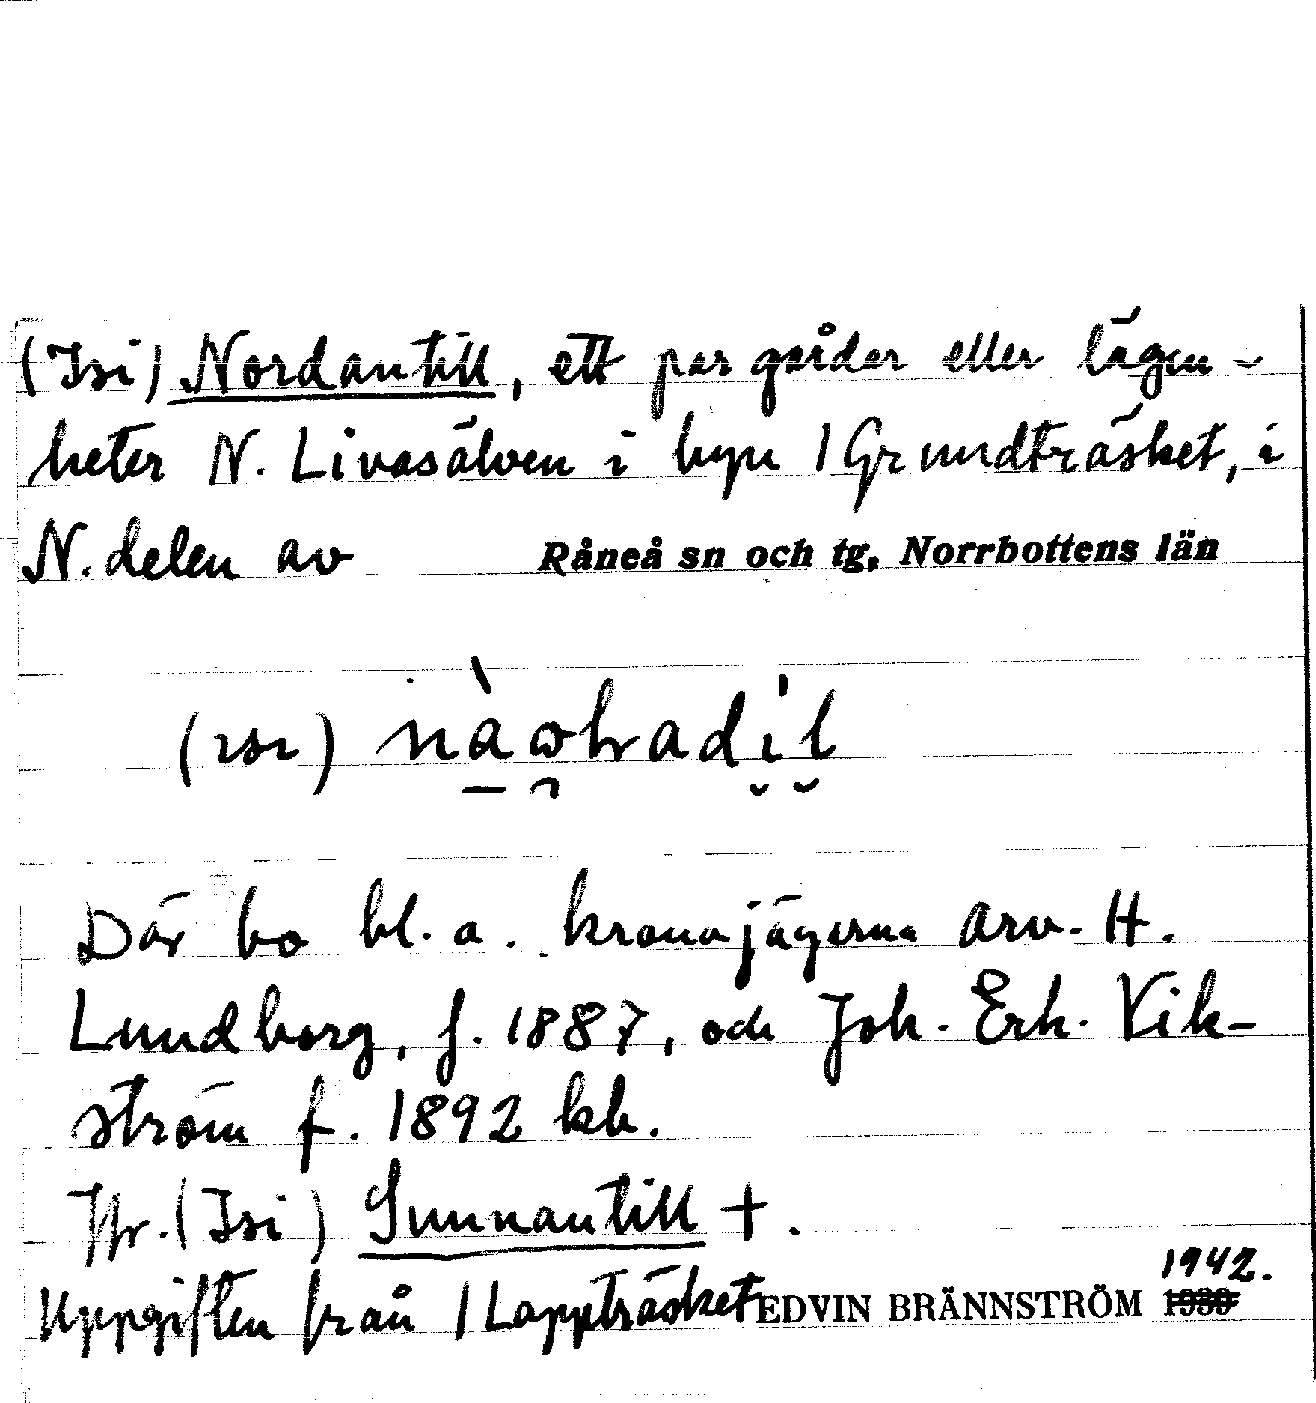 (Isi) Nordantill, ett par gårdar eller lägen-
heter N. Livasälven i byn / Grundträsket, i
N. delen av Råneå sn och tg, Norrbottens län
Där bo bl. a. kronojägarna Arv. H.
Lundborg, f. 1887, och Joh. Erh. Vik-
ström f. 1892 bb.
Jfr. (Isi) Sunnantill +.
Uppgiften från / Lappträsket EDVIN BRÄNNSTRÖM 1942.